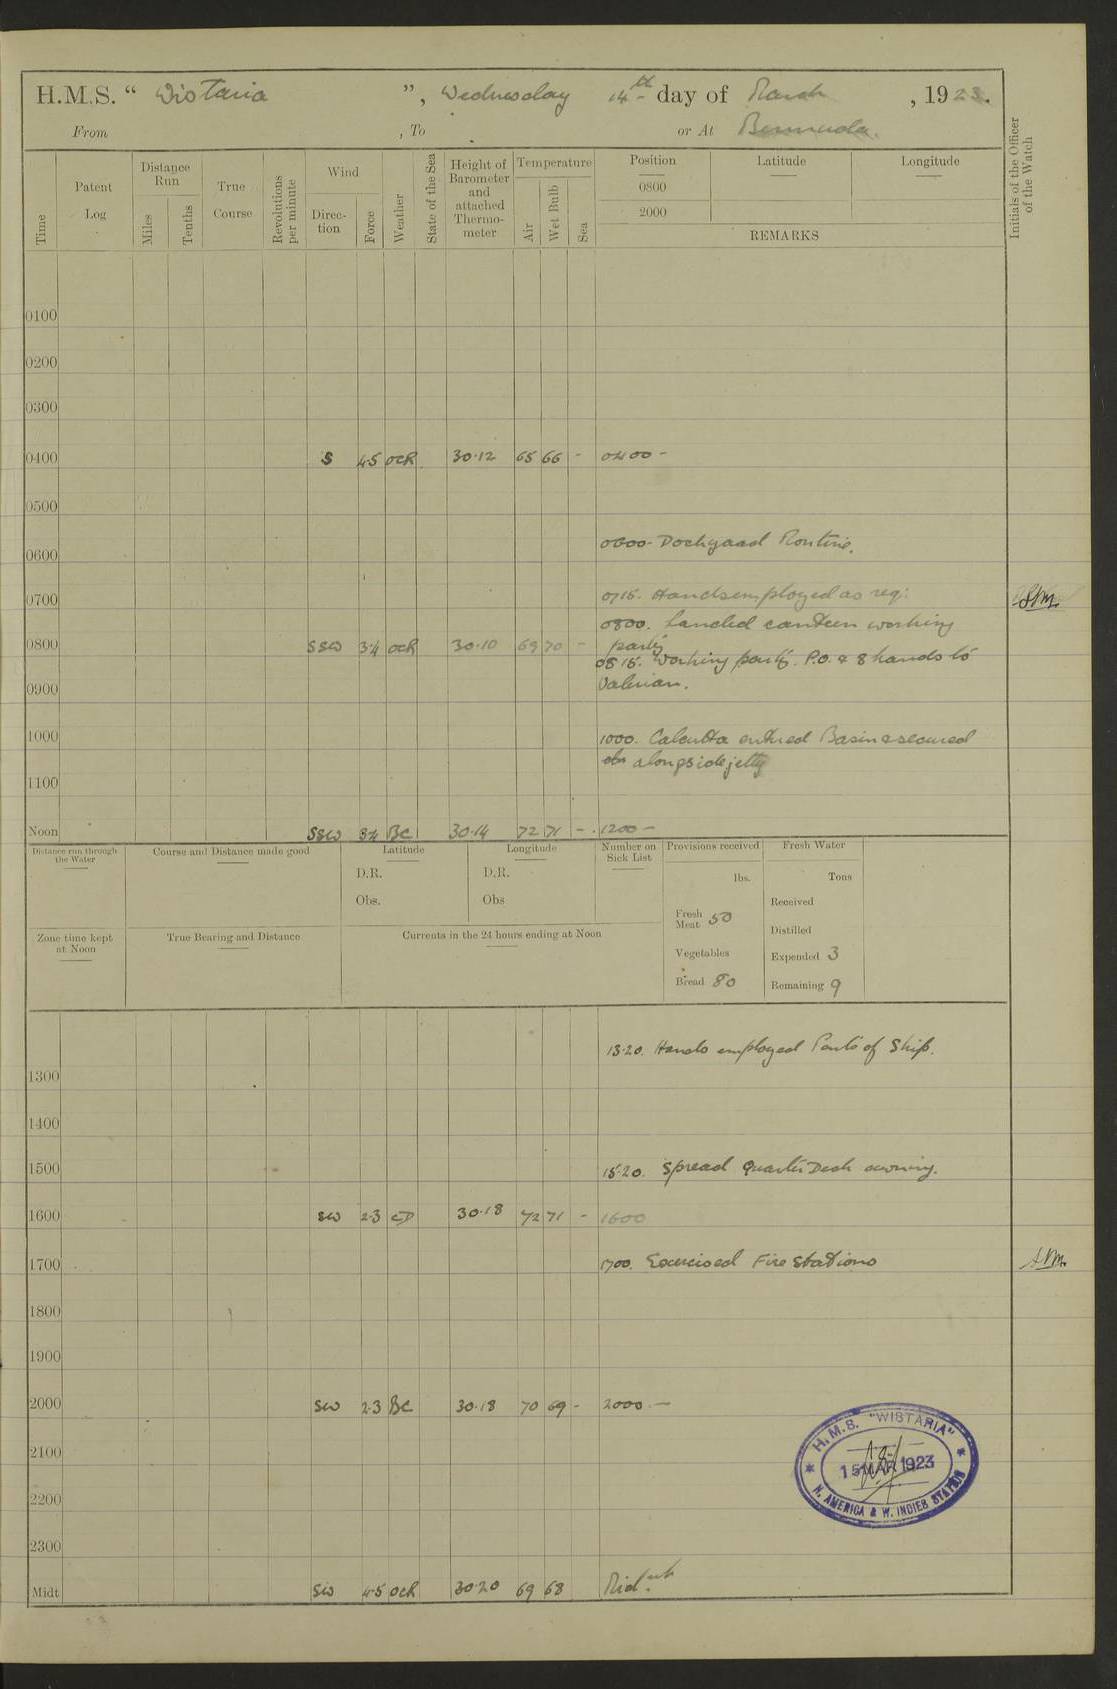 H.M.S. “ Wistaria ”, Wednesday 14th day of March, 1923.
From , To or At Bermuda.
Time
Patent Log
Distance Run
Miles
Tenths
True Course
Revolutions per minute
Wind
Direc- tion
Force
Weather
State of the Sea
Height of Barometer and attached Thermo- meter
Temperature
Air
Wet Bulb
Sea
Position
0800
2000
Latitude
Longitude
REMARKS
Initials of the Officer of the Watch
0100
0200
0300
0400 S 4.5 ocR 30.12 65 66 - 0400 -
0500
0600- Dockyaad Routine.
0600
0715. Hands employed as req:
0700
0800. Landed canteen working
0800 SSW 3.4 ocR 30.10 69 70 - party
0815. Working party. P.O. & 8 hands to
0900 Valerian.
1000 1000. Calcutta entered Basin & secured
alongside jetty
1100
Noon SSW 3.4 BC 30.14 72 71 - 1200 -
Distance run through the Water
Course and Distance made good
Latitude
D.R.
Obs.
Longitude
D.R.
Obs
Number on Sick List
Provisions received
lbs.
Fresh Meat 50
Vegetables
Bread 80
Fresh Water
Tons
Received
Distilled
Expended 3
Remaining 9
Zone time kept at Noon
True Bearing and Distance
Currents in the 24 hours ending at Noon
13.20. Hands employed Parts of Ship.
1300
1400
1500 15.20. Spread Quarter Deck awning.
1600 SW 2.3 CD 30.18 72 71 - 1600
1700 1700. Exercised Fire Stations
1800
1900
2000 SW 2.3 BC 30.18 70 69 - 2000 -
2100
2200
2300
Midt SW 4.5 ocR 30.20 69 68 Midt.
H.M.S. "WISTARIA"
15 MAR 1923
N. AMERICA & W. INDIES STATION